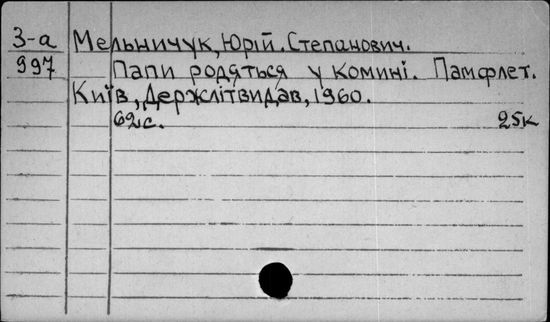 З-а Мельничук, Юрій Степанович.
997 Папи родяться у комині. Памфлет.
Київ, Держлітвидав, 1960.
62с. 25к